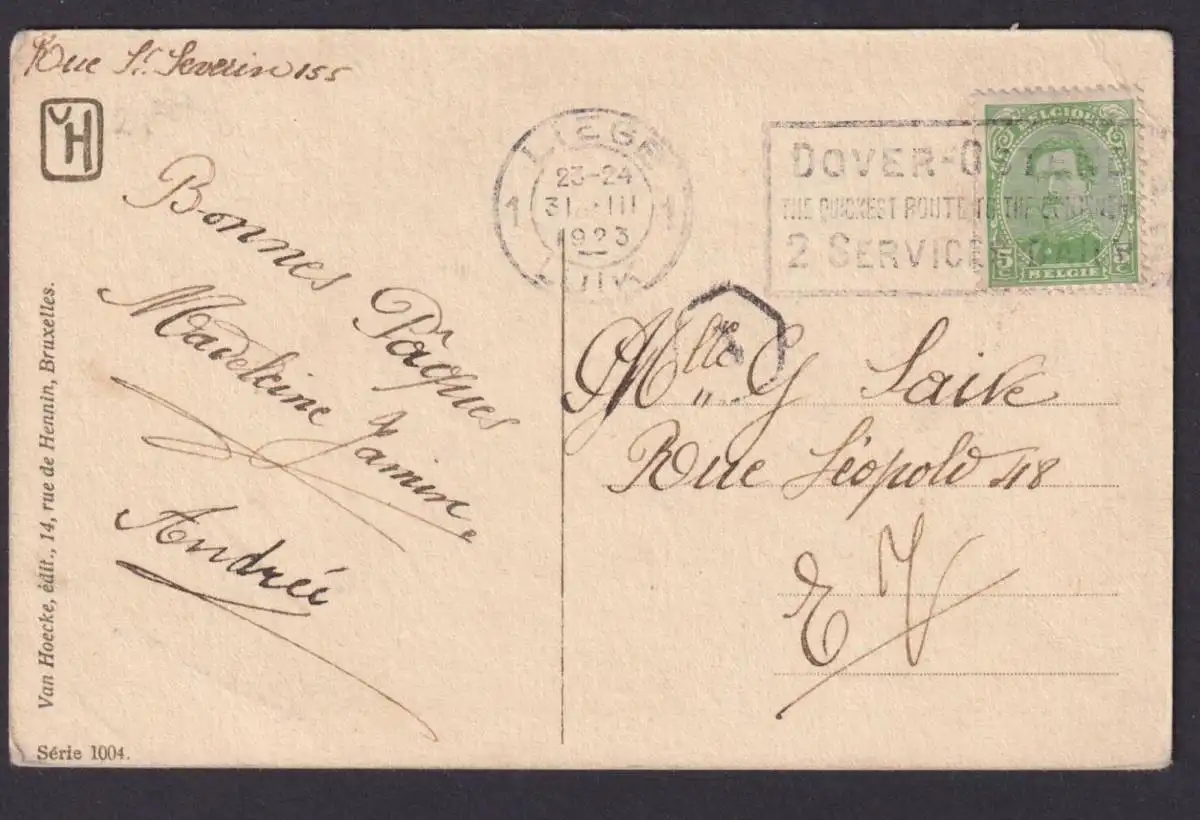 Rue St Severin 155
VH
Bonnes Pâques
Madeleine Janin,
Andrée
Van Hoecke, édit., 14, rue de Hennin, Bruxelles.
Série 1004.
LIEGE
1 1
23-24
31 III
1923
LUIK
DOVER-OSTEND
THE QUICKEST ROUTE TO THE CONTINENT
2 SERVICES DAILY
BELGIQUE
5 C 5 C
BELGIE
Mlle G Laive
Rue Léopold 48
E V